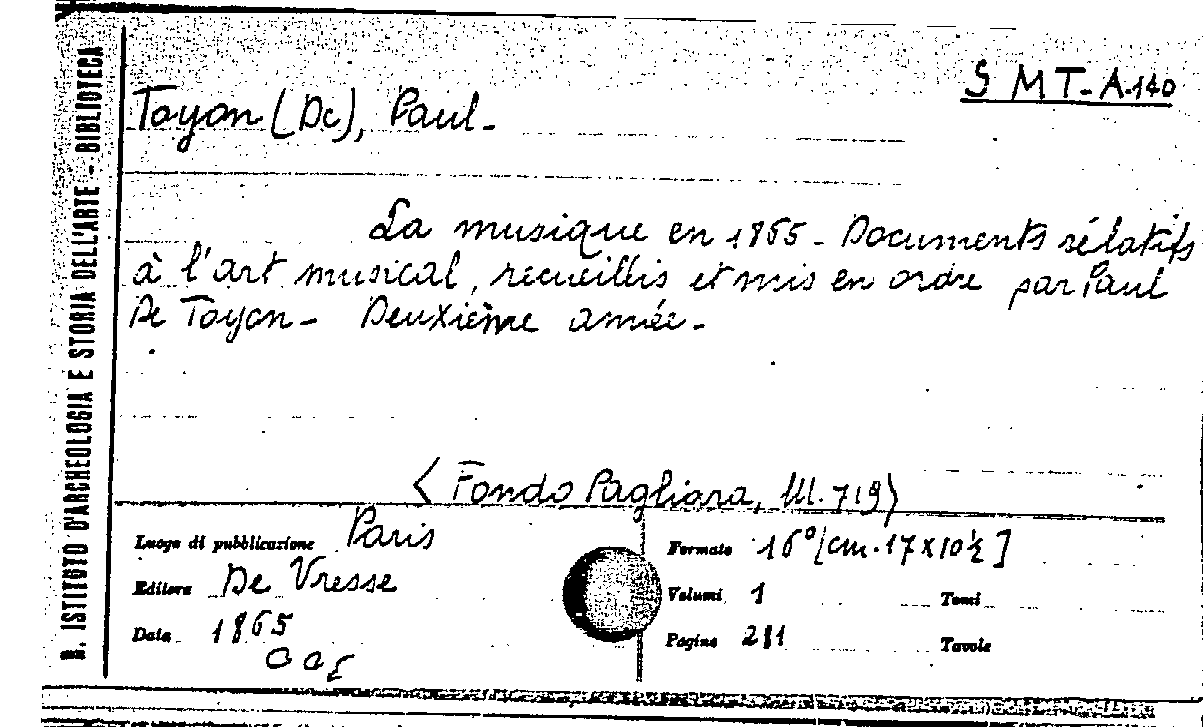 R. ISTITUTO D'ARCHEOLOGIA E STORIA DELL'ARTE - BIBLIOTECA
S M T-A.140
Toyon (De), Paul-
La musique en 1865- Documents rélatifs
à l'art musical, recueillis et mis en ordre par Paul
De Toyon- Deuxième année.-
<Fondo Pagliara, III. 719>
Luogo di pubblicazione Paris
Editore De Vresse
Data 1865
Formato 16° [cm. 17x10½]
Volumi 1 Tomi
Pagine 281 Tavole